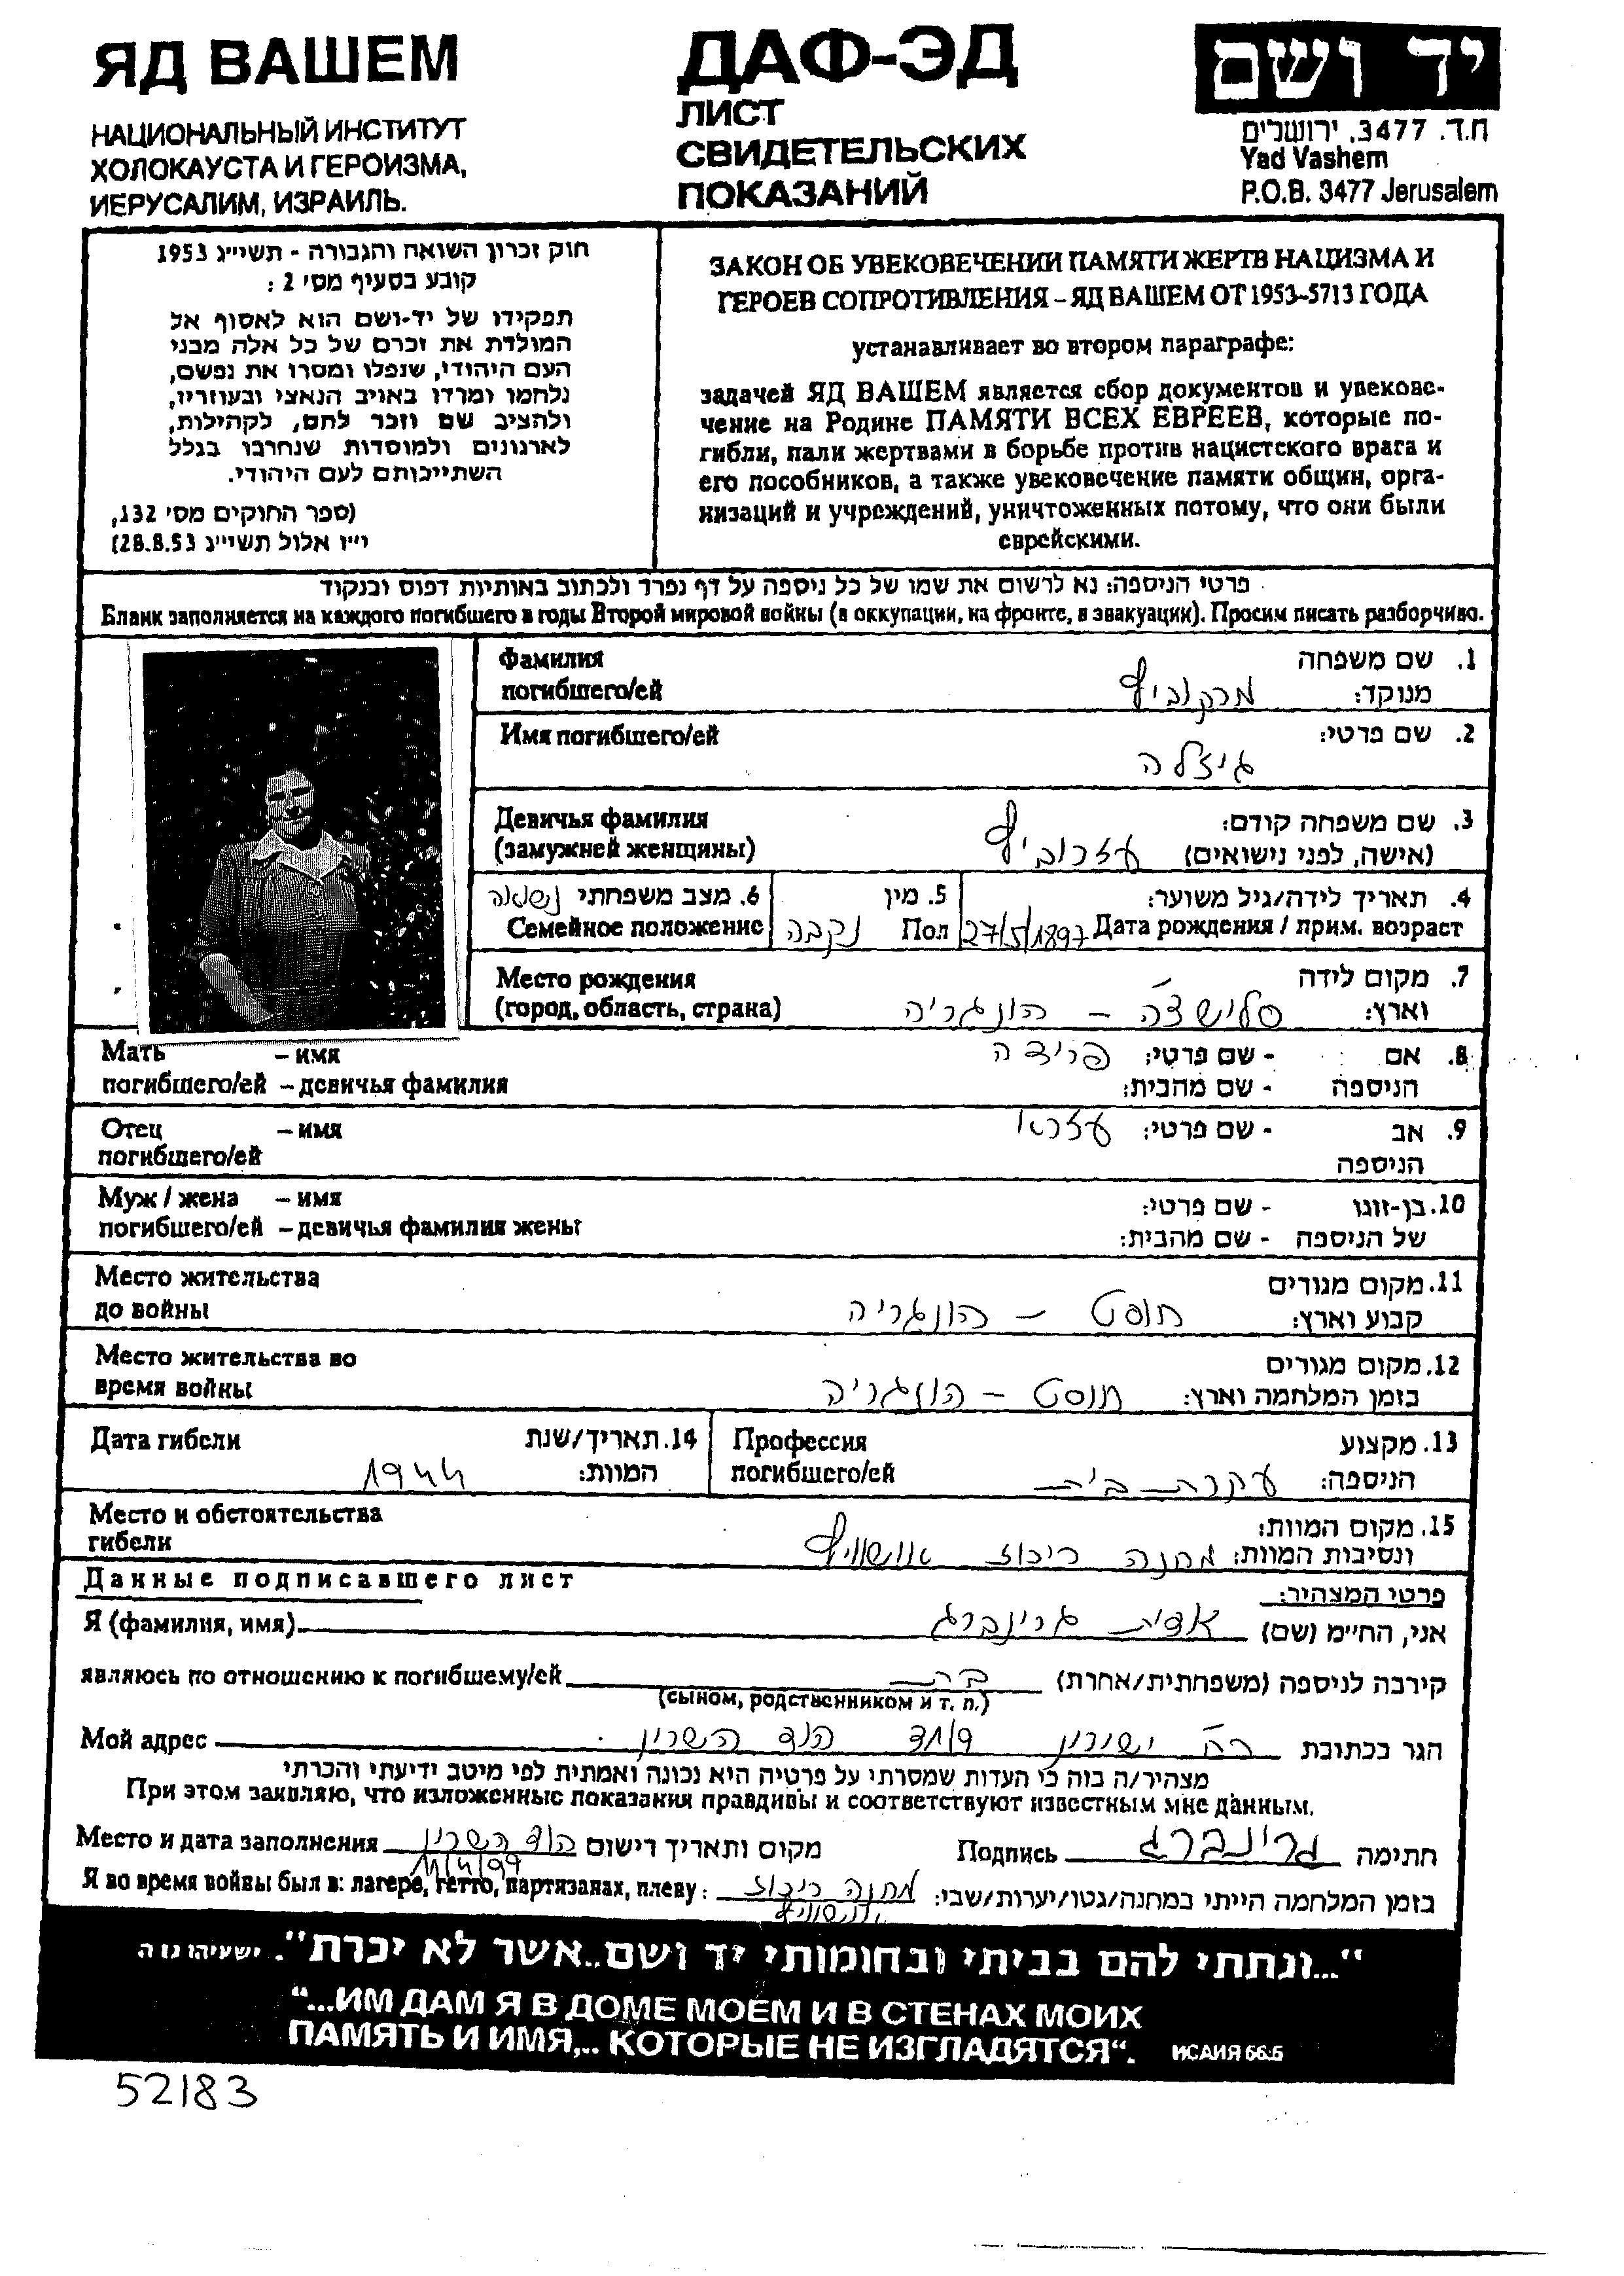 ЯД ВАШЕМ
НАЦИОНАЛЬНЫЙ ИНСТИТУТ
ХОЛОКАУСТА И ГЕРОИЗМА,
ИЕРУСАЛИМ, ИЗРАИЛЬ.
ДАФ-ЭД
ЛИСТ
СВИДЕТЕЛЬСКИХ
ПОКАЗАНИЙ
יד ושם
ת.ד. 3477, ירושלים
Yad Vashem
P.O.B. 3477 Jerusalem
חוק זכרון השואה והגבורה - תשי״ג 1953
קובע בסעיף מס׳ 2:
תפקידו של יד-ושם הוא לאסוף אל
המולדת את זכרם של כל אלה מבני
העם היהודי, שנפלו ומסרו את נפשם,
נלחמו ומרדו באויב הנאצי ובעוזריו,
ולהציב שם וזכר להם, לקהילות,
לארגונים ולמוסדות שנחרבו בגלל
השתייכותם לעם היהודי.
(ספר החוקים מס׳ 132,
י״ז אלול תשי״ג 28.8.53)
ЗАКОН ОБ УВЕКОВЕЧЕНИИ ПАМЯТИ ЖЕРТВ НАЦИЗМА И
ГЕРОЕВ СОПРОТИВЛЕНИЯ – ЯД ВАШЕМ ОТ 1953-5713 ГОДА
устанавливает во втором параграфе:
задачей ЯД ВАШЕМ является сбор документов и увекове-
чение на Родине ПАМЯТИ ВСЕХ ЕВРЕЕВ, которые по-
гибли, пали жертвами в борьбе против нацистского врага и
его пособников, а также увековечение памяти общин, орга-
низаций и учреждений, уничтоженных потому, что они были
еврейскими.
פרטי הניספה: נא לרשום את שמו של כל ניספה על דף נפרד ולכתוב באותיות דפוס ובנקוד
Бланк заполняется на каждого погибшего в годы Второй мировой войны (в оккупации, на фронте, в эвакуации). Просим писать разборчиво.
Фамилия 1. שם משפחה
погибшего/ей מנוקד: מרקוביץ
Имя погибшего/ей 2. שם פרטי:
גיזלה
Девичья фамилия 3. שם משפחה קודם:
(замужней женщины) (אישה, לפני נישואים) עזרוביץ
4. תאריך לידה/גיל משוער: 5. מין 6. מצב משפחתי נשואה
Дата рождения / прим. возраст 27/5/1897 Пол נקבה Семейное положение
Место рождения 7. מקום לידה
(город, область, страна) וארץ: סלישצה - הונגריה
Мать – имя 8. אם - שם פרטי: פרידה
погибшего/ей – девичья фамилия הניספה - שם מהבית:
Отец – имя 9. אב - שם פרטי: עזרא
погибшего/ей הניספה
Муж / жена – имя 10. בן-זוגו - שם פרטי:
погибшего/ей – девичья фамилия жены של הניספה - שם מהבית:
Место жительства 11. מקום מגורים
до войны קבוע וארץ: חוסט - הונגריה
Место жительства во 12. מקום מגורים
время войны בזמן המלחמה וארץ: חוסט - הונגריה
Профессия 13. מקצוע Дата гибели 14. תאריך/שנת
погибшего/ей הניספה: עקרת בית המוות: 1944
Место и обстоятельства 15. מקום המוות:
гибели ונסיבות המוות: מחנה ריכוז אושוויץ
Данные подписавшего лист פרטי המצהיר:
Я (фамилия, имя) אני, החי״מ (שם) אדית גרינברג
являюсь по отношению к погибшему/ей קירבה לניספה (משפחתית/אחרת) בת
(сыном, родственником и т. п.)
Мой адрес הגר בכתובת רח׳ ישורון הוד השרון
מצהיר/ה בזה כי העדות שמסרתי על פרטיה היא נכונה ואמתית לפי מיטב ידיעתי והכרתי
При этом заявляю, что изложенные показания правдивы и соответствуют известным мне данным.
Место и дата заполнения מקום ותאריך רישום הוד השרון 11/4/99 Подпись חתימה גרינברג
Я во время войны был в: лагере, гетто, партизанах, плену: בזמן המלחמה הייתי במחנה/גטו/יערות/שבי: מחנה ריכוז
אושוויץ
״...ונתתי להם בביתי ובחומותי יד ושם..אשר לא יכרת״. ישעיהו נו ה
“...ИМ ДАМ Я В ДОМЕ МОЕМ И В СТЕНАХ МОИХ
ПАМЯТЬ И ИМЯ,.. КОТОРЫЕ НЕ ИЗГЛАДЯТСЯ“. ИСАИЯ 66:5
52183